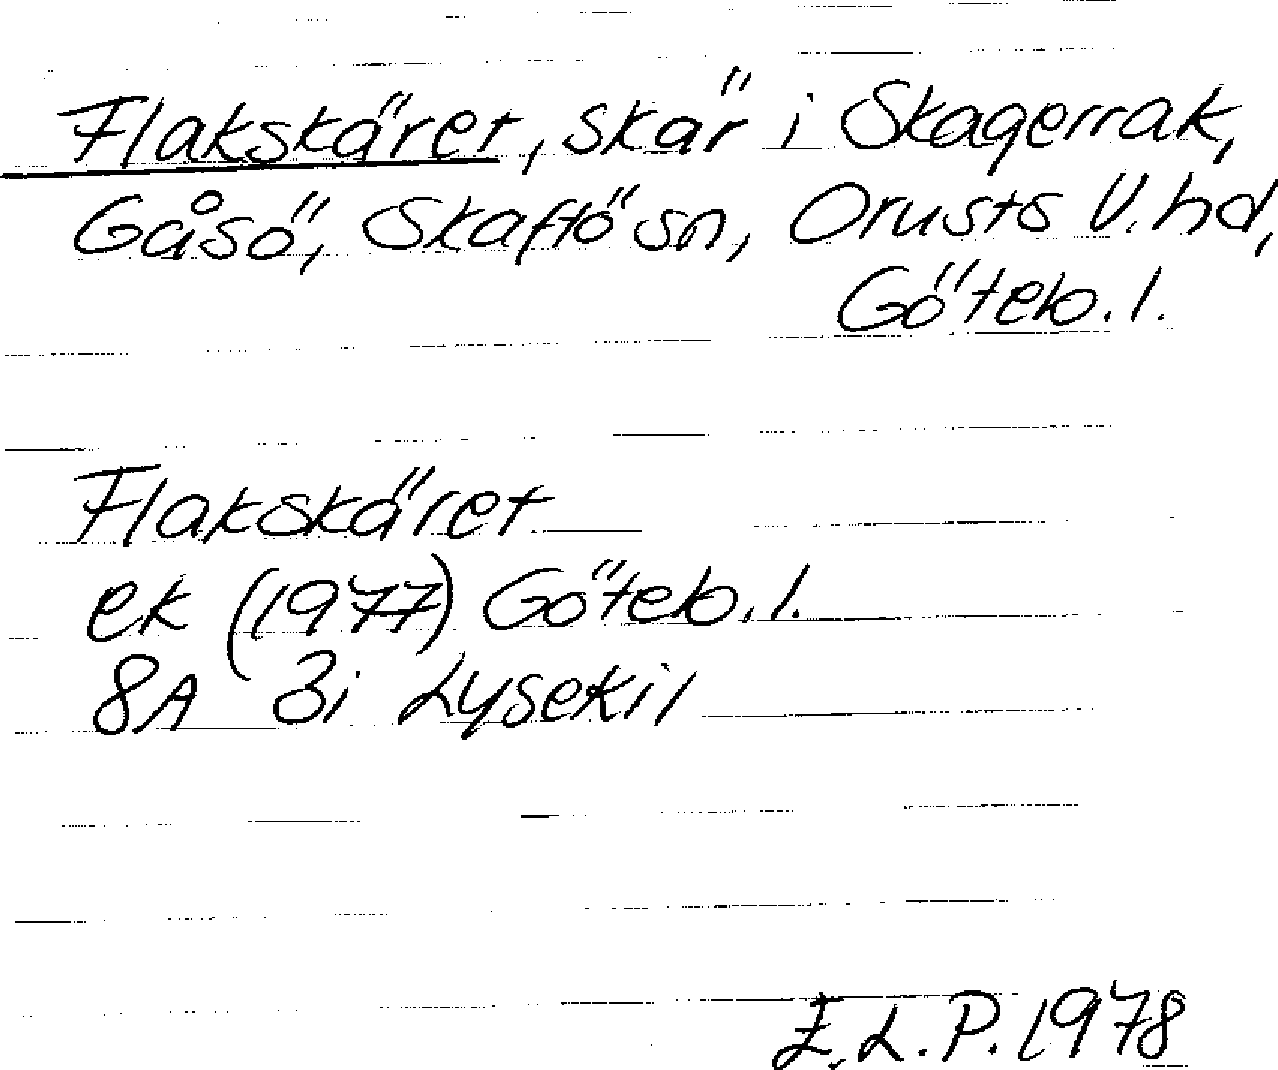 Flakskäret, skär i Skagerrak,
Gåsö, Skaftö sn, Orusts V. hd,
Göteb. l.
Flakskäret
ek (1977) Göteb. l.
8A 3i Lysekil
E. L. P. 1978